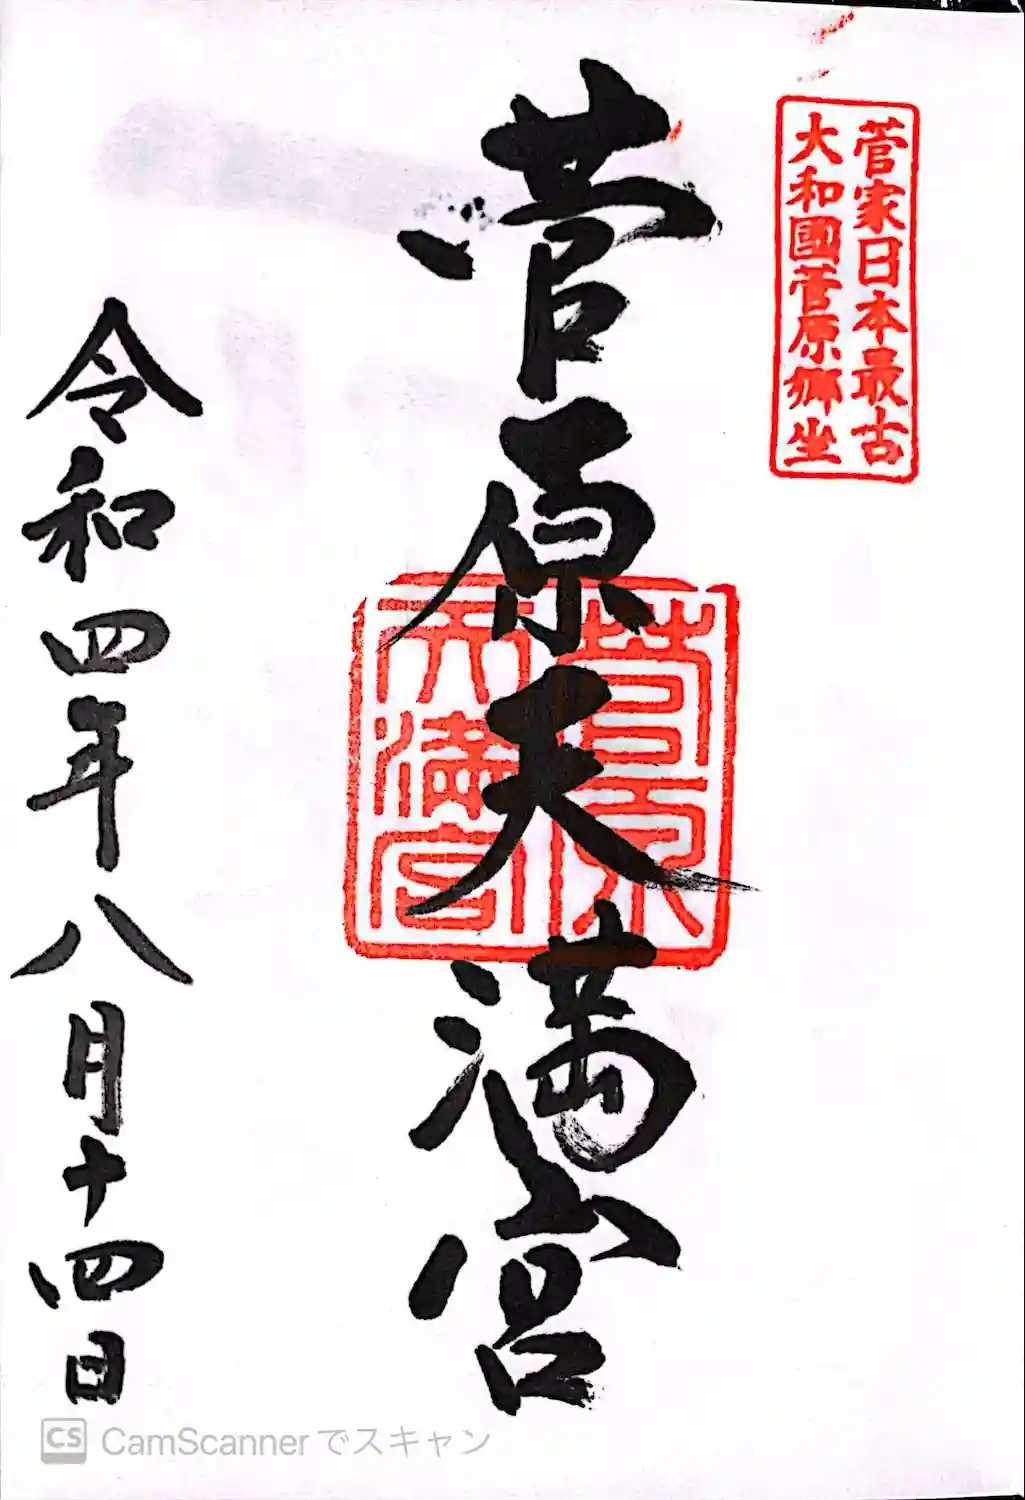 菅家日本最古
大和國菅原郷坐
菅原天満宮
菅原
天満宮
令和四年八月十四日
CS CamScanner でスキャン